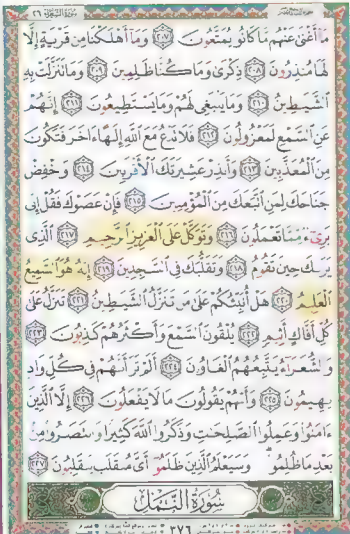 سُورَةُ الشُّعَرَاءِ ٢٦
مَا أَغْنَىٰ عَنْهُم مَّا كَانُوا يُمَتَّعُونَ ٢٠٧ وَمَا أَهْلَكْنَا مِن قَرْيَةٍ إِلَّا
لَهَا مُنذِرُونَ ٢٠٨ ذِكْرَىٰ وَمَا كُنَّا ظَٰلِمِينَ ٢٠٩ وَمَا تَنَزَّلَتْ بِهِ
الشَّيَٰطِينُ ٢١٠ وَمَا يَنبَغِي لَهُمْ وَمَا يَسْتَطِيعُونَ ٢١١ إِنَّهُمْ
عَنِ السَّمْعِ لَمَعْزُولُونَ ٢١٢ فَلَا تَدْعُ مَعَ اللَّهِ إِلَٰهًا ءَاخَرَ فَتَكُونَ
مِنَ الْمُعَذَّبِينَ ٢١٣ وَأَنذِرْ عَشِيرَتَكَ الْأَقْرَبِينَ ٢١٤ وَاخْفِضْ
جَنَاحَكَ لِمَنِ اتَّبَعَكَ مِنَ الْمُؤْمِنِينَ ٢١٥ فَإِنْ عَصَوْكَ فَقُلْ إِنِّي
بَرِيءٌ مِّمَّا تَعْمَلُونَ ٢١٦ وَتَوَكَّلْ عَلَى الْعَزِيزِ الرَّحِيمِ ٢١٧ الَّذِي
يَرَىٰكَ حِينَ تَقُومُ ٢١٨ وَتَقَلُّبَكَ فِي السَّٰجِدِينَ ٢١٩ إِنَّهُ هُوَ السَّمِيعُ
الْعَلِيمُ ٢٢٠ هَلْ أُنَبِّئُكُمْ عَلَىٰ مَن تَنَزَّلُ الشَّيَٰطِينُ ٢٢١ تَنَزَّلُ عَلَىٰ
كُلِّ أَفَّاكٍ أَثِيمٍ ٢٢٢ يُلْقُونَ السَّمْعَ وَأَكْثَرُهُمْ كَٰذِبُونَ ٢٢٣
وَالشُّعَرَاءُ يَتَّبِعُهُمُ الْغَاوُونَ ٢٢٤ أَلَمْ تَرَ أَنَّهُمْ فِي كُلِّ وَادٍ
يَهِيمُونَ ٢٢٥ وَأَنَّهُمْ يَقُولُونَ مَا لَا يَفْعَلُونَ ٢٢٦ إِلَّا الَّذِينَ
ءَامَنُوا وَعَمِلُوا الصَّٰلِحَٰتِ وَذَكَرُوا اللَّهَ كَثِيرًا وَانتَصَرُوا مِن
بَعْدِ مَا ظُلِمُوا وَسَيَعْلَمُ الَّذِينَ ظَلَمُوا أَيَّ مُنقَلَبٍ يَنقَلِبُونَ ٢٢٧
سُورَةُ النَّمْلِ
٣٧٦